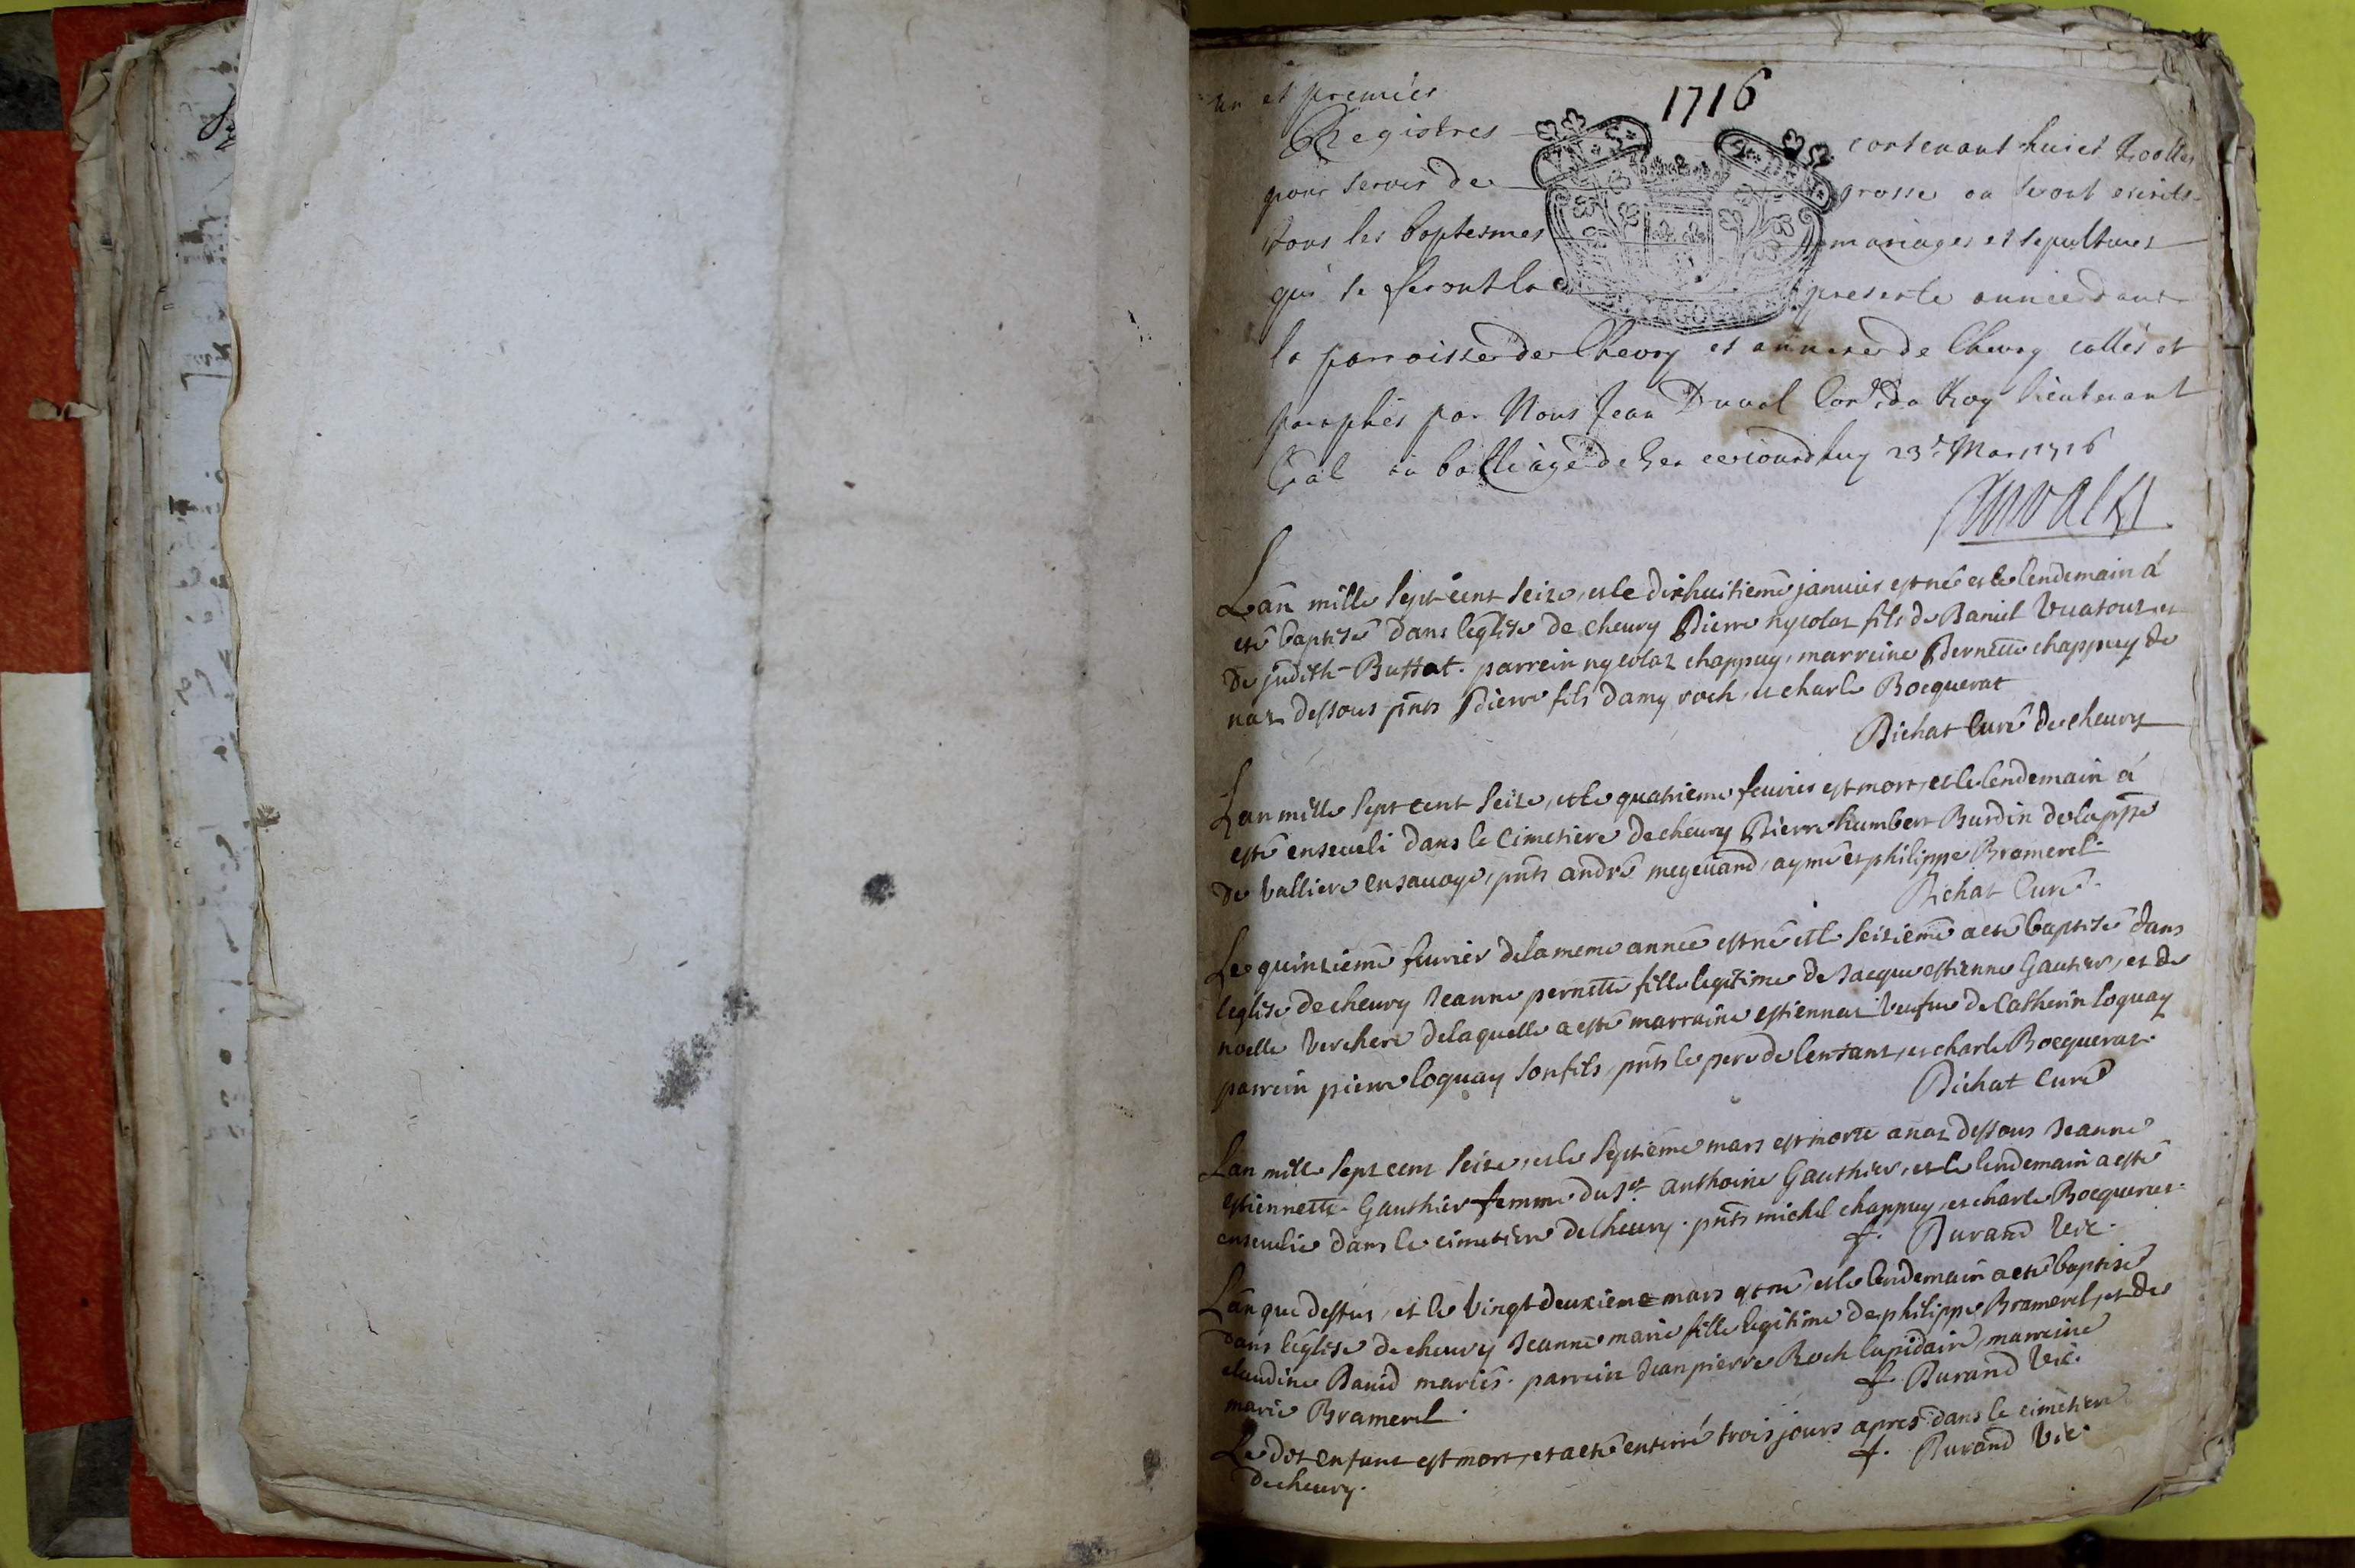 1716
un et premier
Registres contenant huict roolles
pour servir de grosse ou seront escrits
tous les baptesmes mariages et sepultures
qui se feront la presente année dans
la parroisse de Chevry et annexe de Chevry cottés et
paraphés par Nous Jean Duval du Roy lieutenant
Gal au balliage de Gex ce iourd'huy 23e Mars 1716
Duval
Lan mille sept cent seize, et le dixhuitieme janvier est né et le lendemain á
eté baptisé dans leglise de cheury Pierre nycolaz fils de Daniel et
de judith Buttat. parrein nycolaz chappuy, marreine Pernette chappuy de
naz dessous pnts Pierre fils damy roch, et charle Bocquerat
Bichat Curé de cheury
Lan mille sept cent seize, et le quatrieme feurier est mort, et le lendemain á
esté enseueli dans le cimetiere de cheury Pierre humbert Burdin de la ppsse
de Valliere en sauoye, pnts andré megeuand, aymé et philippe Bramerel.
Bichat Curé.
Le quinzieme feurier de la meme année est né et le seizieme a eté baptisé dans
leglise de cheury Jeanne pernette fille legitime de Jacque estienne Gautier, et de
noelle Verchere de laquelle a esté marraine estiennaz veufue de Catherin loquay
parrein pierre loquay son fils, pnts le pere de lenfant, et charle Bocqueraz.
Bichat Curé
Lan mille sept cent seize, et le septieme mars est morte a naz dessous Jeanne
estiennette Gauthier femme du Sr anthoine Gauthier, et le lendemain a esté
enseuelie dans le cimetiere de cheury. pnts michel chappuy, et charle Bocqueraz.
f. Durand Vic.
Lan que dessus, et le vingt deuxieme mars est né, et le lendemain a eté baptisé
dans leglise de cheury Jeanne marie fille legitime de philippe Bramerel, et de
claudine David mariés. parrein Jean pierre Roch lapidaire, marreine
marie Bramerel.
f. Durand Vic.
Le dit enfant est mort, et a eté enterré trois jours apres dans le cimetiere
de cheury.
f. Durand Vic.